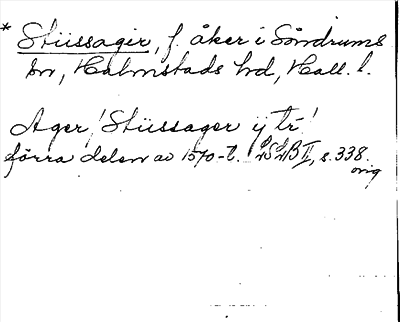 * Stüssager, f. åker i Söndrums
sn, Halmstads hd, Hall. l.
Ager! Stüssager ij tr!
förra delen av 1570-t. LSÄB II, s. 338.
orig